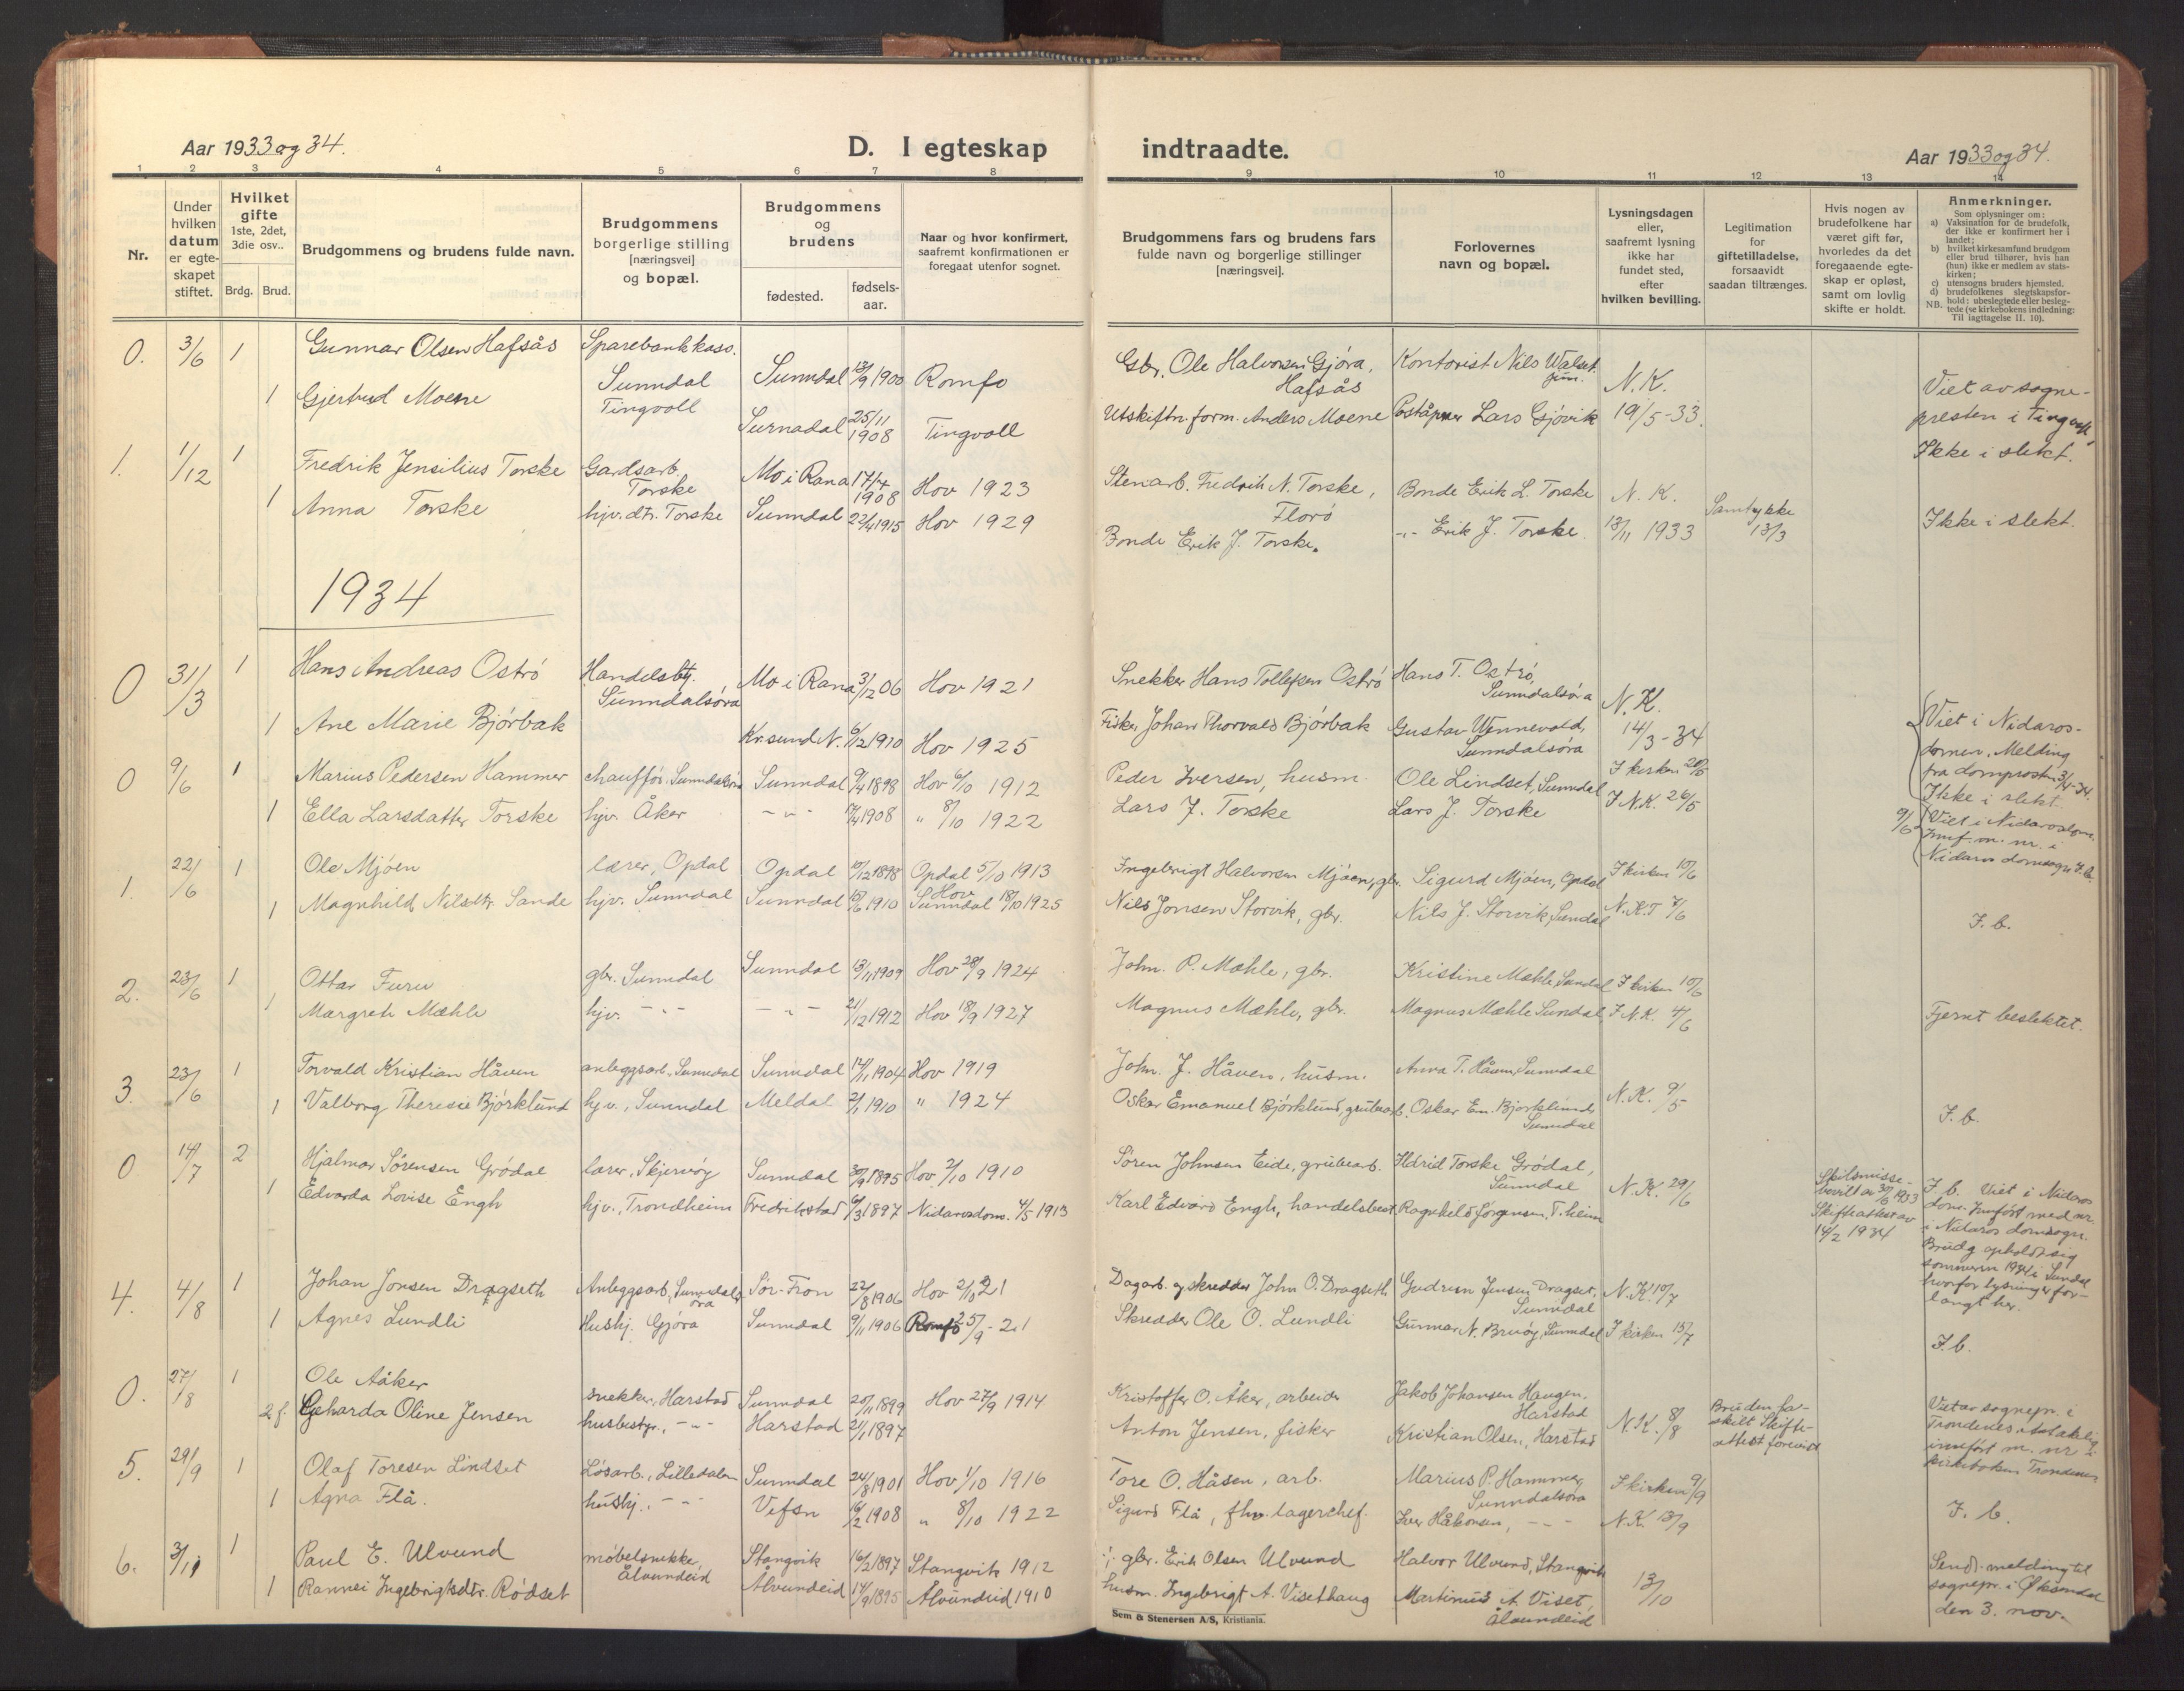 Aar 1933 og 34.
D. I egteskap indtraadte.
Aar 1933 og 34.
1 2 3 4 5 6 7 8 9 10 11 12 13 14
Nr.
Under hvilken datum er egte-skapet stiftet.
Hvilket gifte 1ste, 2det, 3die osv..
Brdg. Brud.
Brudgommens og brudens fulde navn.
Brudgommens borgerlige stilling [næringsvei] og bopæl.
Brudgommens og brudens
fødested.
fødsels-aar.
Naar og hvor konfirmert, saafremt konfirmationen er foregaat utenfor sognet.
Brudgommens fars og brudens fars fulde navn og borgerlige stillinger [næringsvei].
Forlovernes navn og bopæl.
Lysningsdagen eller, saafremt lysning ikke har fundet sted, efter hvilken bevilling.
Legitimation for giftetilladelse, forsaavidt saadan tiltrænges.
Hvis nogen av brudefolkene har været gift før, hvorledes da det foregaaende egte-skap er opløst, samt om lovlig skifte er holdt.
Anmerkninger.
Som oplysninger om:
a) Vaksination for de brudefolk, der ikke er konfirmert her i landet;
b) hvilket kirkesamfund brudgom eller brud tilhører, hvis han (hun) ikke er medlem av stats-kirken;
c) utensogns bruders hjemsted.
d) brudefolkenes slegtskapsfor-hold: ubeslegtede eller besleg-tede (se kirkebokens indledning: Til iagttagelse II. 10).
NB.
0. 3/6 1 Gunnar Olsen Hafsås Sparebankkass. Sunndal Sunndal 13/9 1900 Romfo Gbr. Ole Halvorsen Gjøra, Hafsås Kontorist Nils Walset jun. N.K.
1 Gjertrud Moene Tingvoll Surnadal 25/11 1908 Tingvoll Utskiftn.form. Anders Moene Poståpner Lars Gjøvik 19/5-33. Viet av sogne-presten i Tingvoll, Ikke i slekt.
1. 1/12 1 Fredrik Jensilius Torske Gardsarb. Torske Mo i Rana 17/4 1908 Hov 1923 Stenarb. Fredrik N. Torske, Florø Bonde Erik L. Torske N.K. Samtykke
1 Anna Torske hjv. dtr. Torske Sunndal 22/4 1915 Hov 1929 Bonde Erik J. Torske. -"- Erik J. Torske. 13/11 1933 13/3 Ikke i slekt.
1934
0 31/3 1 Hans Andreas Ostrø Handelsbtj. Sunndalsøra Mo i Rana 3/12 06 Hov 1921 Snekker Hans Tollefsen Ostrø Hans T. Ostrø, Sunndalsøra N.K.
1 Ane Marie Bjørbak Kr.sund N. 6/12 1910 Hov 1925 Fisker Johan Thorvald Bjørbak Gustav Wennevold, Sunndalsøra 14/3-34 Viet i Nidaros-domen. Melding fra domprosten 3/4-34. Ikke i slekt.
0 9/6 1 Marius Pedersen Hammer chauffør. Sunndalsøra Sunndal 9/4 1898 Hov 6/10 1912 Peder Iversen, husm. Ole Lindset, Sunndal I kirken 20/5
1 Ella Larsdatter Torske hjv. Åker -"- 7/4 1908 " 8/10 1922 Lars J. Torske Lars J. Torske I N.K. 26/5 9/6 Viet i Nidarosdom. Innf. m. nr. i Nidaros domsogn K.b.
1. 22/6 1 Ole Mjøen lærer, Opdal Opdal 10/12 1898 Opdal 5/10 1913 Ingebrigt Halvorsen Mjøen, gbr. Sigurd Mjøen, Opdal I kirken 10/6
1 Magnhild Nilsdtr. Sande hjv. Sunndal Sunndal 18/6 1910 Hov Sunndal 18/10 1925 Nils Jonsen Storvik, gbr. Nils J. Storvik, Sundal N.K.T 7/6 I. b.
2. 23/6 1 Ottar Furu gbr. Sunndal Sunndal 13/11 1909 Hov 28/9 1924 John. P. Mæhle, gbr. Kristine Mæhle, Sundal I kirken 10/6
1 Margrete Mæhle hjv. -"- -"- 21/12 1912 Hov 18/9 1927 Magnus Mæhle, gbr. Magnus Mæhle Sundal, I N.K. 4/6 Fjernt beslektet.
3. 23/6 1 Torvald Kristian Håven anleggsarb., Sunndal Sunndal 14/11 1904 Hov 1919 John. J. Håven, husm. Anna T. Håven, Sunndal
1 Valborg Theresie Bjørklund hjv., Sunndal Meldal 2/1 1910 " 1924 Oskar Emanuel Bjørklund, grubearb. Oskar Em. Bjørklund Sunndal N.K. 9/5 I. b.
0 14/7 2 Hjalmar Sørensen Grødal lærer, Skjervøy Sunndal 30/9 1895 Hov. 2/10 1910 Søren Johnsen Eide, grubearb. Ildrid Torske Grødal, Sunndal Skilsmisse-bevilt av 30/6 1933 Skifteattest av 14/2 1934
1 Edvarda Lovise Engh hjv., Trondheim Fredrikstad 6/3 1897 Nidarosdom. 4/5 1913 Karl Edvard Engh, handelsbest. Ragnhild Jørgensen, T.heim N.K. 29/6 I. b. Viet i Nidaros dom. Innført med nr. i Nidaros domsogn. Brudg opholdt sig sommeren 1934 i Sundal hvorfor lysning er for-langt her.
4. 4/8 1 Johan Jonsen Dragseth Anleggsarb, Sunndals øra Sør-Fron 22/8 1906 Hov 2/10 21 Dagarb. og skredder John O. Dragseth Gudrun Jensen Dragset, Sunndal N.K. 10/7
1 Agnes Lundli Hushj. Gjøra Sunndal 9/11 1906 Romfo 25/9-21 Skredder Ole O. Lundli Gunnar N. Bruøy, Sunndal I kirken 15/7 I. b.
0. 27/8 1 Ole Aaker snekker, Harstad Sunndal 20/11 1899 Hov 27/9 1914 Kristoffer O. Åker, arbeider Jakob Johansen Haugen, Harstad N.K. 8/8 Bruden fra-skilt Skifte-attest forevist
2 f. Geharda Oline Jensen husbestyr., -"- Harstad 21/1 1897 Anton Jensen, fisker Kristian Olsen, Harstad Viet av sognepr. i Trondenes innført m. nr i kirkeboken Trondenes
5. 29/9 1 Olaf Toresen Lindset Løsarb., Lilledalen Sunndal 24/8 1901 Hov 1/10 1916 Tore O. Håsen, arb. Marius P. Hammer Sunndalsøra I kirken 9/9
1 Agna Flå. hushj., -"- Vefsn 16/2 1908 " 8/10 1922 Sigurd Flå, fhv. lagerchef. Iver Håkonsen, -"- N.K. 13/9 I. b.
6. 3/11 1 Paul E. Ulvund møbelsnikke, Ålvundeid Stangvik 16/2 1897 Stangvik 1912 gbr. Erik Olsen Ulvund Halvor Ulvund, Stangvik
1 Rannei Ingebrigtsdtr. Rødset Ålvundeid 14/9 1895 Ålvundeid 1910 husm. Ingebrigt A. Visethaug Martinus A Viset, Ålvundeid 13/10 Send. melding til sognepr. i Øksendal den 3. nov.
Sem & Stenersen A/S, Kristiania.